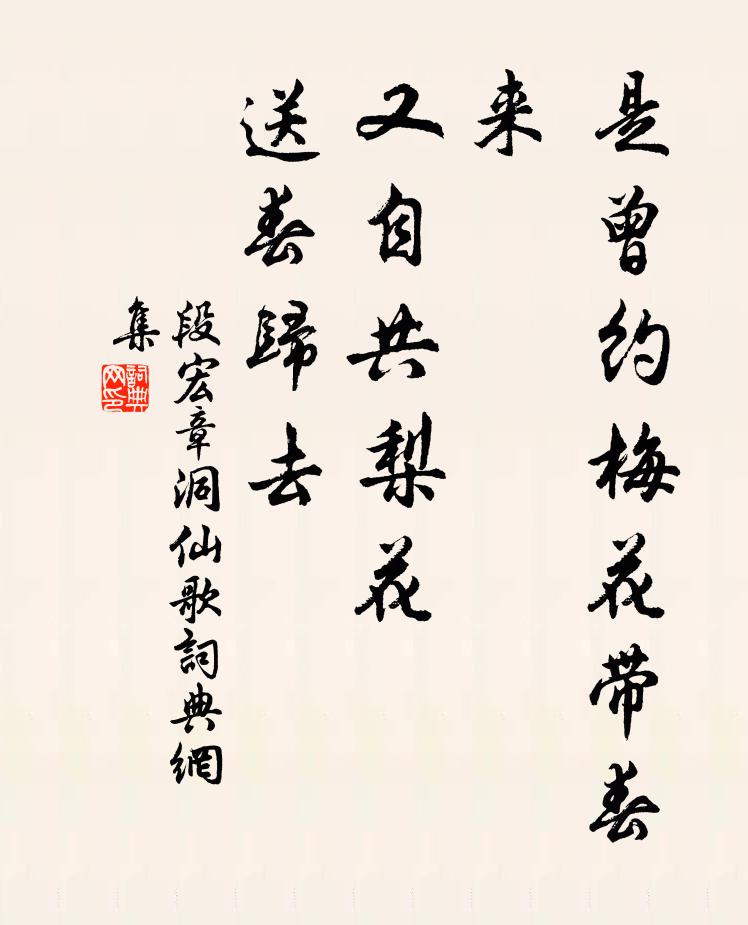 是曾約梅花帶春
来
又自共梨花
送春歸去
段宏章洞仙歌詞典網
集
詞典
网印